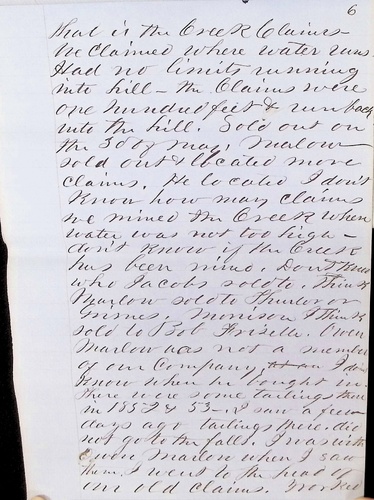 6
That is the Creek Claims -
We claimed where water runs.
Had no limits running
into hill - the Claims were
one hundred feet & run back
into the hill. Sold out on
the 3d of May, Marlow
sold out & located more
claims. He located I don't
know how many claims
we mined the Creek when
water was not too high -
don't know if the Creek
has been mined. Don't know
who Jacobs sold to. Think
Marlow sold to or
Grimes. Morrison I think
sold to Bob Frizelle. Owen
Marlow was not a member
of our Company, I don't
know when he bought in.
There were some tailings then
in 1852 & 53 - I saw a few
days ago tailings there. did
not go to the falls. I was with
Owen Marlow when I saw
them. I went to the head of
our old claims.